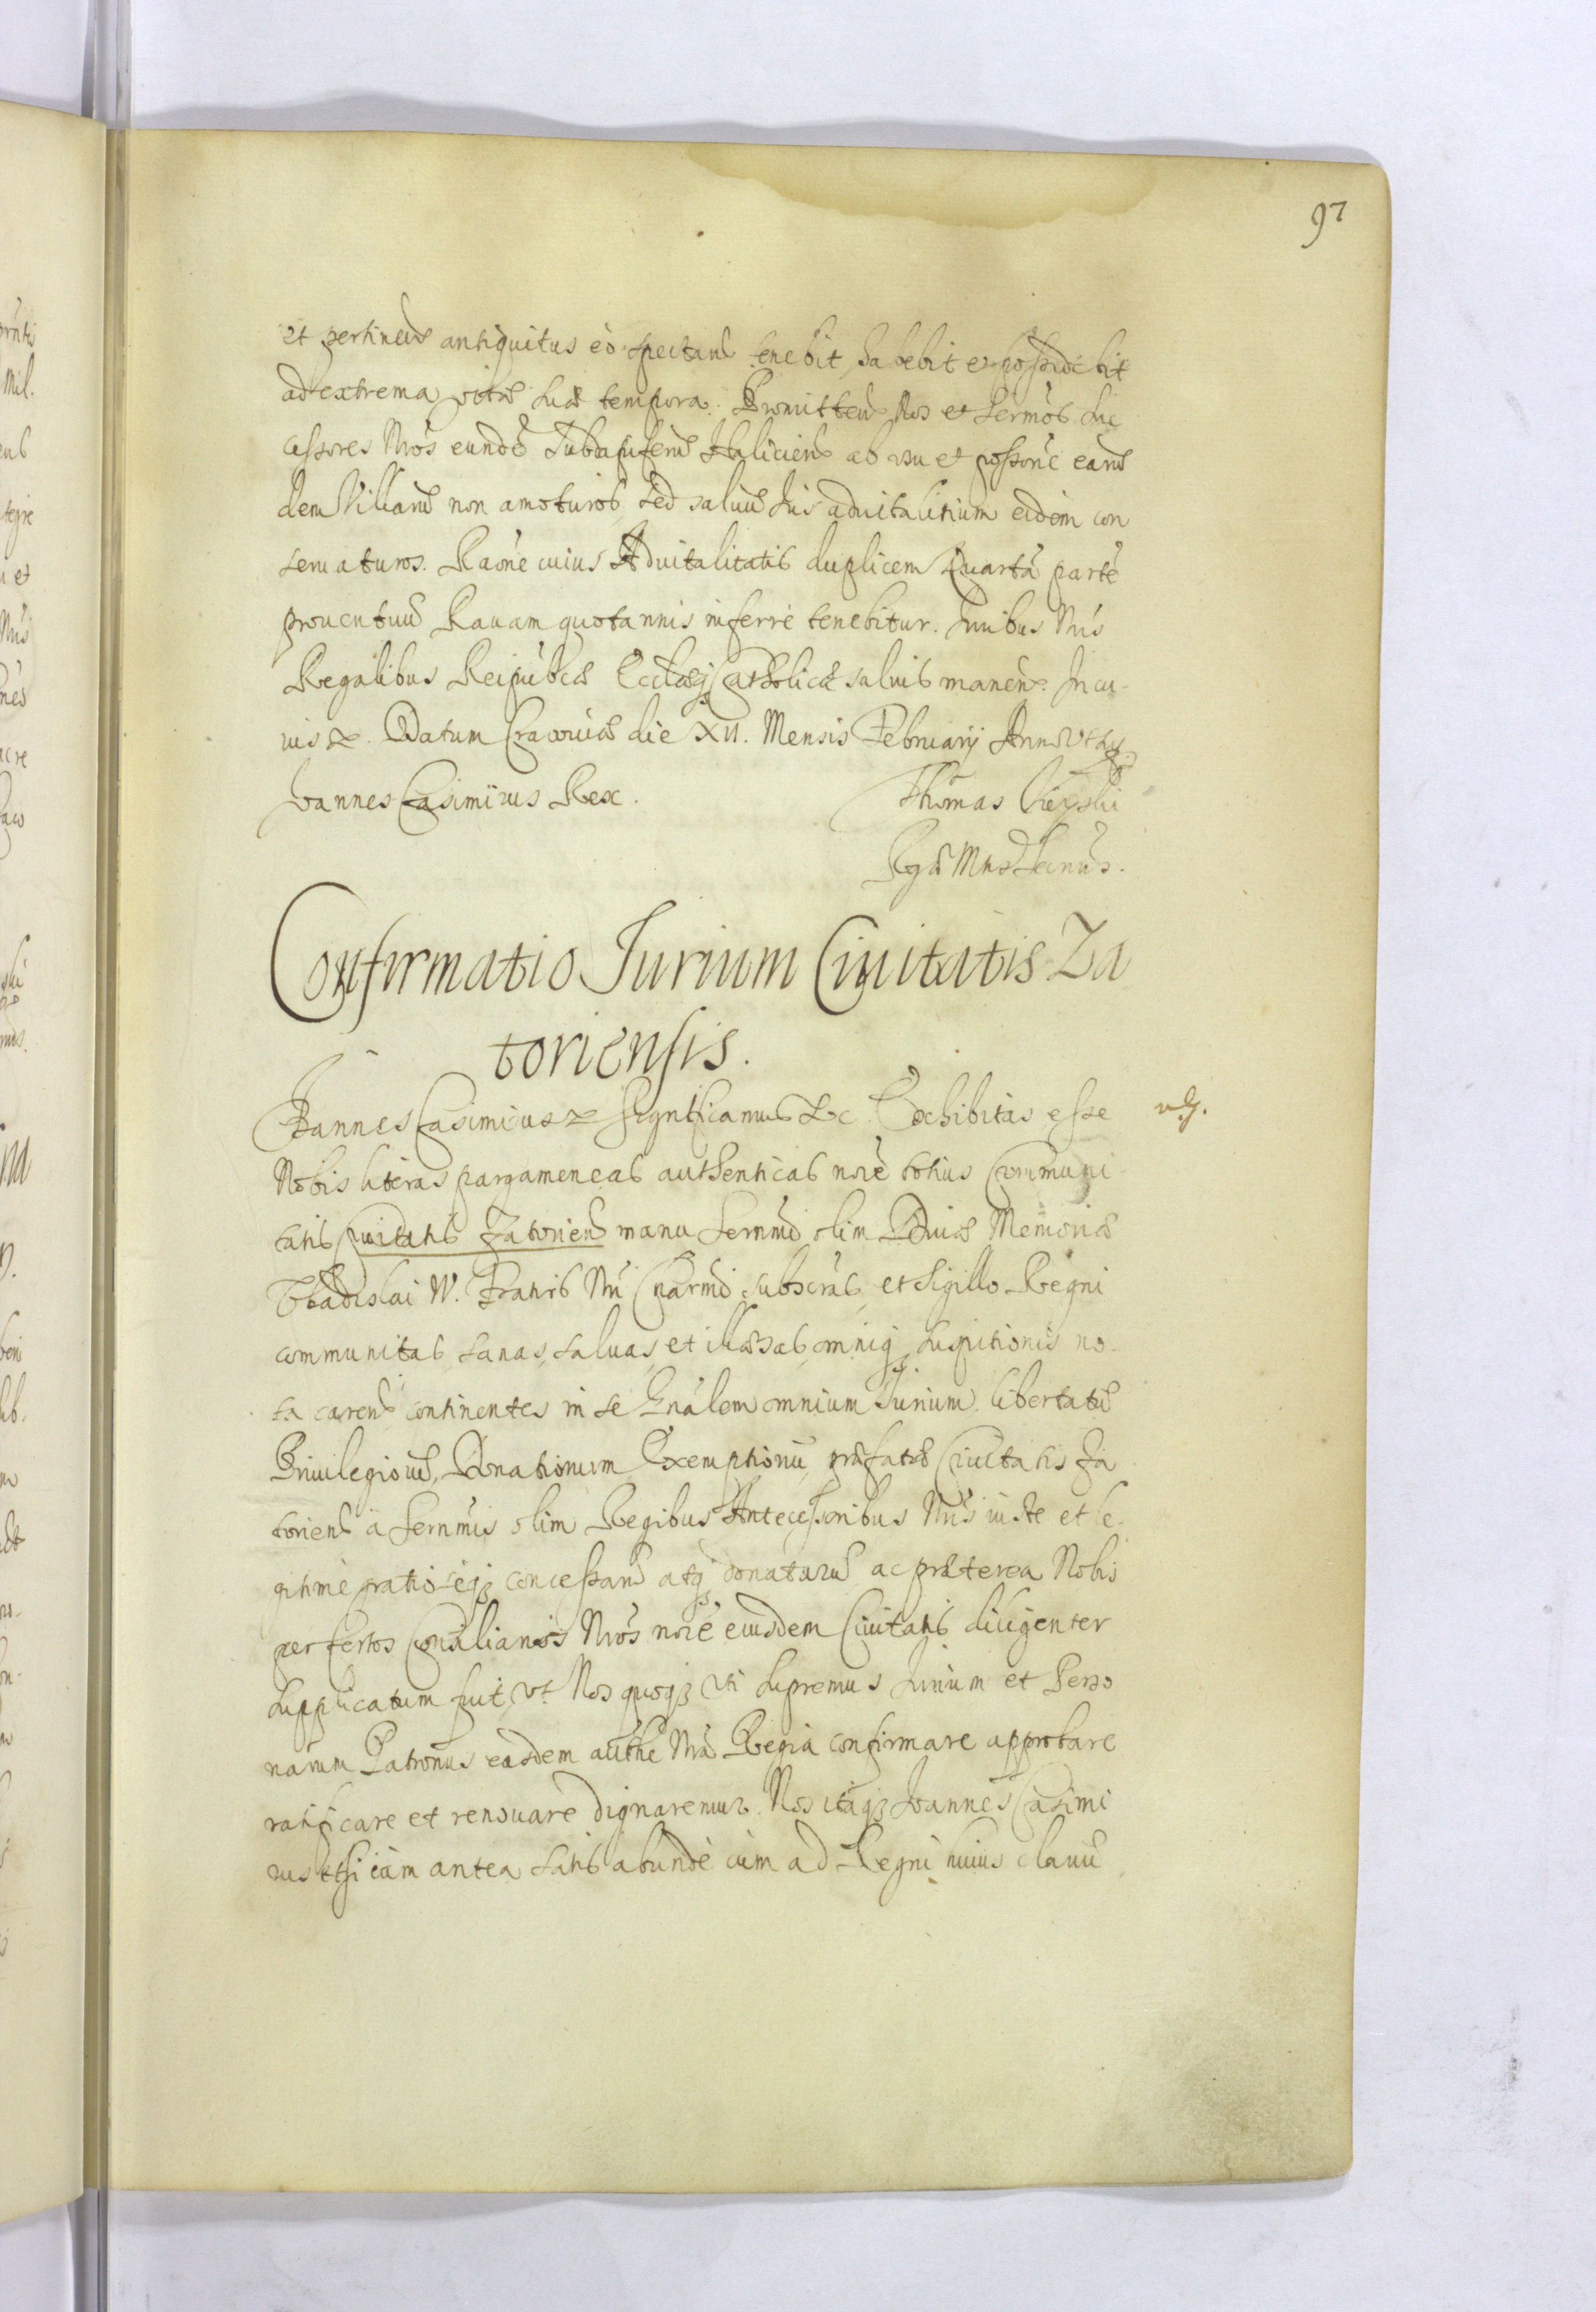 97
et pertinen antiquitus eò spectan tenebit, habebit et possidebit
ad extrema vitæ suæ tempora. Promitten Nos et Sermos Suc
cessores Nros eundẽ Subdapiferũ Haliciens ab usu et possone earũ
dem Villarũ non amoturos, sed saluũ Jus aduitalitium eidem con
seruaturos. Raõne cuius Aduitalitatis duplicem Quartã partẽ
prouentuũ Rauam quotannis inferre tenebitur. Juribus Nris
Regalibus Reipubcæ Ecclæq Catholicæ saluis manen. In cu-
ius &. Datum Cracouiæ die XII. Mensis February Anno Ut sup
Joannes Casimirus Rex. Thomas
Regæ Mtis Secrius.
Confirmatio Jurium Ciuitatis Za
toriensis.
Joannes Casimirus & Significamus &c. Exhibitas esse
Nobis literas pargameneas authenticas noiẽ totius Communi
tatis Ciuitatis Zatorien manu Sernmi olim Diuæ Memoriæ
Vladislai IV. Fratris Nri Charmi subscrás, et Sigillo Regni
communitas, sanas, saluas, et illæsas, omniq suspitionis no-
ta caren continentes in se Gnalem omnium Jurium, libertatũ
Priuilegiorũ, Donationum Exemptionũ, præfatæ Ciuitatis Za
torien à Sernmis olim Regibus Antecessoribus Nris iuste et le-
gitime gratioseq concessarũ atq donatarũ, ac præterea Nobis
per certos Consiliarios Nros noiẽ eiusdem Ciuitatis diligenter
supplicatum fuit, vt Nos quoq vti supremus Jurium et Perso
narum Patronus easdem authe Nra Regia confirmare approbare
ratificare et renouare dignaremur. Nos itaq Joannes Casimi
rus etsi iam antea satis abundè cùm ad Regni huius clauũ